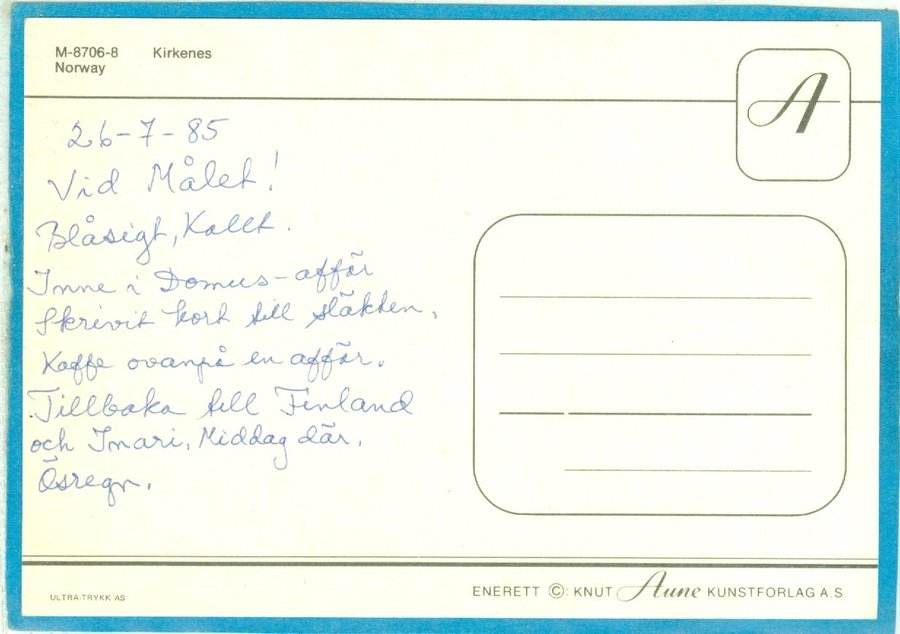 M-8706-8 Kirkenes
Norway
A
26-7-85
Vid Målet!
Blåsigt, Kallt.
Inne i Domus-affär
Skrivit kort till släkten.
Kaffe ovanpå en affär.
Tillbaka till Finland
och Inari. Middag där.
Ösregn.
ULTRA-TRYKK AS
ENERETT ©: KNUT Aune KUNSTFORLAG A.S